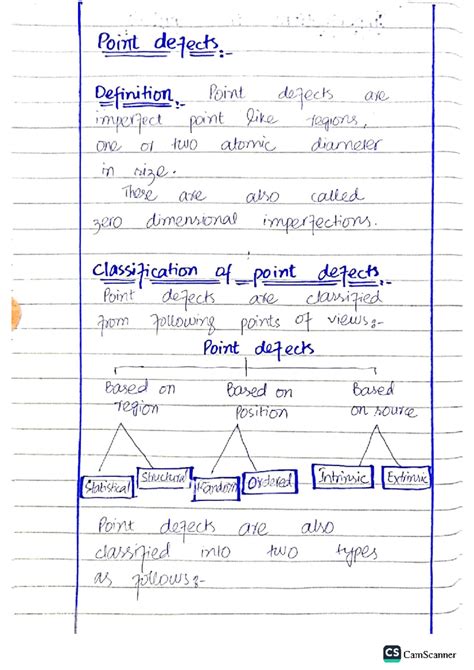 Point defects:-
Definition:- Point defects are
imperfect point like regions,
one or two atomic diameter
in size.
These are also called
zero dimensional imperfections.
Classification of point defects:-
Point defects are classified
from following points of views:-
Point defects
Based on region
Based on Position
Based on source
Statistical
Structural
Random
Ordered
Intrinsic
Extrinsic
Point defects are also
classified into two types
as follows:-
CS CamScanner